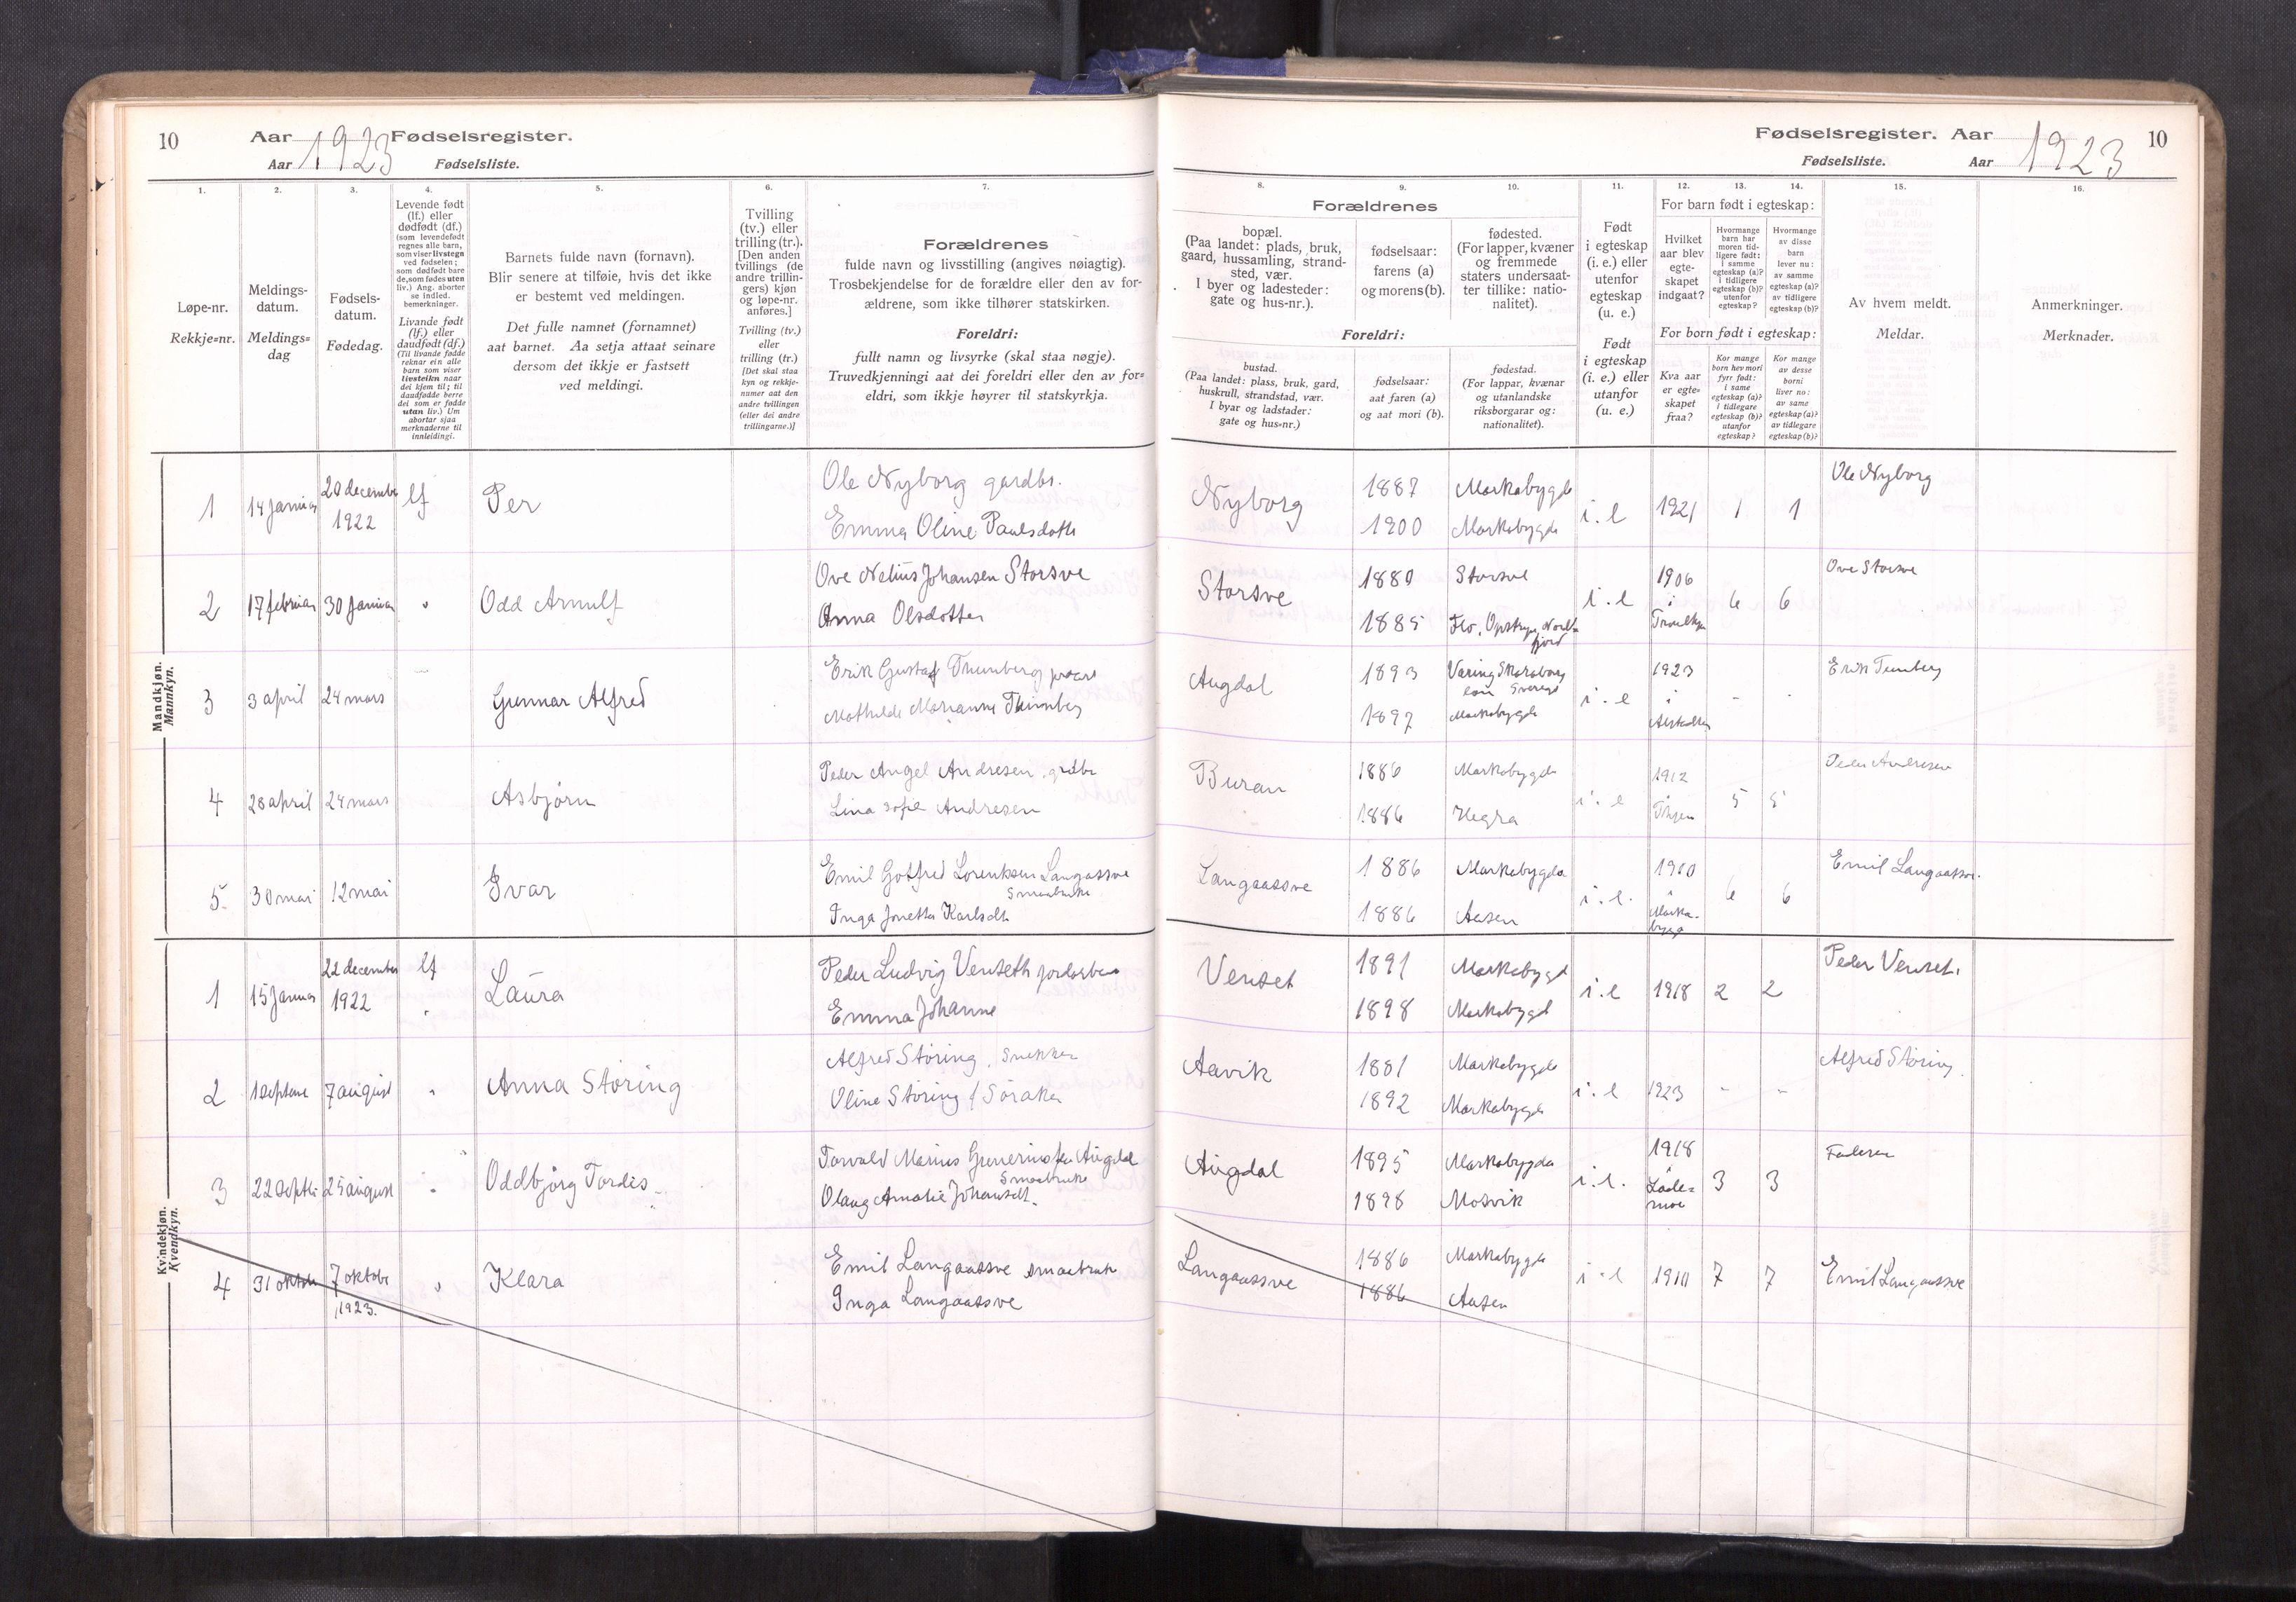 10
Aar 1923 Fødselsregister.
Aar Fødselsliste.
1. 2. 3. 4. 5. 6. 7.
Løpe-nr.
Rekkje=nr.
Meldings-
datum.
Meldings=
dag
Fødsels-
datum.
Fødedag.
Levende født
(lf.) eller
dødfødt (df.)
(som levendefødt
regnes alle barn,
som viser livstegn
ved fødselen;
som dødfødt bare
de, som fødes uten
liv.) Ang. aborter
se indled.
bemerkninger.
Livande født
(lf.) eller
daudfødt (df.)
(Til livande fødde
reknar ein alle
barn som viser
livsteikn naar
dei kjem til; til
daudfødde berre
dei som er fødde
utan liv.) Um
abortar sjaa
merknaderne til
innleidingi.
Barnets fulde navn (fornavn).
Blir senere at tilføie, hvis det ikke
er bestemt ved meldingen.
Det fulle namnet (fornamnet)
aat barnet. Aa setja attaat seinare
dersom det ikkje er fastsett
ved meldingi.
Tvilling
(tv.) eller
trilling (tr.).
[Den anden
tvillings (de
andre trillin-
gers) kjøn
og løpe-nr.
anføres.]
Tvilling (tv.)
eller
trilling (tr.)
[Det skal staa
kyn og rekkje-
numer aat den
andre tvillingen
(eller dei andre
trillingarne.)]
Forældrenes
fulde navn og livsstilling (angives nøiagtig).
Trosbekjendelse for de forældre eller den av for-
ældrene, som ikke tilhører statskirken.
Foreldri:
fullt namn og livsyrke (skal staa nøgje).
Truvedkjenningi aat dei foreldri eller den av for=
eldri, som ikkje høyrer til statskyrkja.
Mandkjøn.
Mannkyn.
1 14 januar 20 december 1922 lf Per
Ole Nyborg gardbr.
Emma Oline Paulsdotte
2 17 februar 30 januar " Odd Arnulf
Ove Nelius Johansen Storsve
Anna Olsdotter
3 3 april 24 mars Gunnar Alfred
Erik Gustaf Thunberg
Mathilde Marianne Thunberg
4 28 april 24 mars Asbjørn
Peder Angel Andresen
Lina Sofie Andresen
5 30 mai 12 mai Ivar
Emil Gotfred Lorenksen Langaassve
Smaabruker
Inga Jonetta Karlsdtr
Kvindekjøn.
Kvendkyn.
1 15 januar 22 december 1922 lf Laura
Peder Ludvig Venseth
Emma Johanne
2 1 septemr 7 august " Anna Støring
Alfred Støring. Snekker
Oline Støring f Søraker
3 22 septbr 25 august " Oddbjørg Tordis
Torvald Marius Augdal
Smaabruker
Olaug Amalie Johansdt.
4 31 oktobr 7 oktobr 1923. " Klara
Emil Langaassve smaabruk
Inga Langaassve
Fødselsregister. Aar 1923 10
Fødselsliste. Aar
8. 9. 10. 11. 12. 13. 14. 15. 16.
Forældrenes
bopæl.
(Paa landet: plads, bruk,
gaard, hussamling, strand-
sted, vær.
I byer og ladesteder:
gate og hus-nr.).
fødselsaar:
farens (a)
og morens (b).
fødested.
(For lapper, kvæner
og fremmede
staters undersaat-
ter tillike: natio-
nalitet).
Foreldri:
bustad.
(Paa landet: plass, bruk, gard,
huskrull, strandstad, vær.
I byar og ladstader:
gate og hus=nr.)
fødselsaar:
aat faren (a)
og aat mori (b).
fødestad.
(For lappar, kvænar
og utanlandske
riksborgarar og:
nationalitet).
Født
i egteskap
(i. e.) eller
utenfor
egteskap
(u. e.)
Født
i egteskap
(i. e.) eller
utanfor
(u. e.)
For barn født i egteskap:
Hvilket
aar blev
egte-
skapet
indgaat?
Hvormange
barn har
moren tid-
ligere født:
i samme
egteskap (a)?
i tidligere
egteskap (b)?
utenfor
egteskap?
Hvormange
av disse
barn
lever nu:
av samme
egteskap (a)?
av tidligere
egteskap (b)?
For born født i egteskap:
Kva aar
er egte-
skapet
fraa?
Kor mange
born hev mori
fyrr født:
i same
egteskap (a)?
i tidlegare
egteskap (b)?
utanfor
egteskap?
Kor mange
av desse
borni
liver no:
av same
egteskap (a)?
av tidlegare
egteskap (b)?
Av hvem meldt.
Meldar.
Anmerkninger.
Merknader.
Nyborg 1887 Markabygda i.e 1921 1 1 Ole Nyborg
1900 Markabygda
Storsve 1880 Storsve i.e 1906 i 6 6 Ove Storsve
1885 Flo, Opstryn, Nordfjord
Augdal 1893 Sverige i.e 1923 i - - Erik Tunberg
1897 Markabygda
Buran 1886 Markabygda i.e 1912 5 5 Peder Andresen
1886 Hegra
Langaassve 1886 Markabygda i.e. 1910 i Markabygd 6 6 Emil Langaassve.
1886 Aasen
Venset 1891 Markabygd i.e 1918 2 2 Peder Venset.
1898 Markabygd
Aavik 1881 Markabygda i.e 1923 - - Alfred Støring
1892 Markabygda
Augdal 1895 Markabygda i.e. 1918 3 3 Faderen
1898 Mosvik
Langaassve 1886 Markabygda i.e 1910 7 7 Emil Langaassve
1886 Aasen